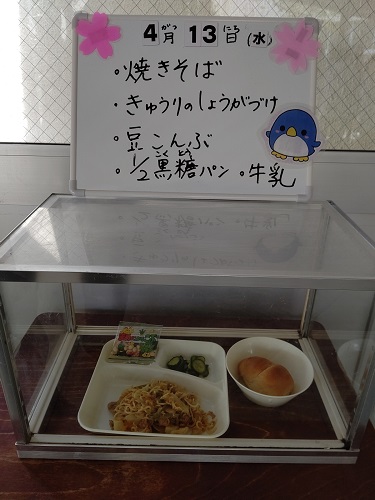 4月 13日(水)
がつ にち
・焼きそば
・きゅうりのしょうがづけ
・豆こんぶ
こくとう
・1/2黒糖パン ・牛乳